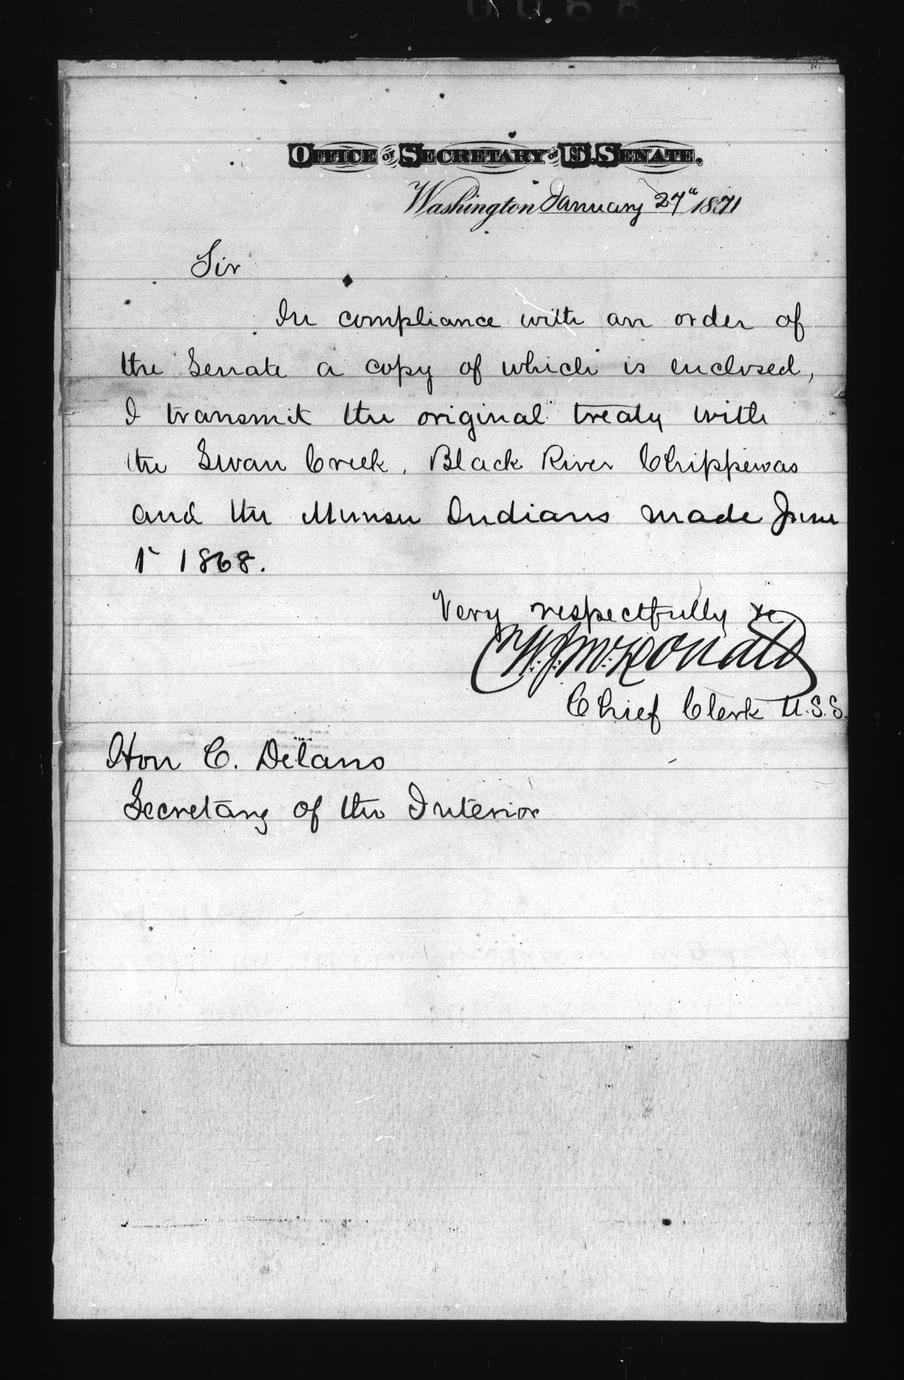 0068
OFFICE OF SECRETARY OF U.S. SENATE.
Washington January 27" 1871
Sir
In compliance with an order of
the Senate a copy of which is enclosed,
I transmit the original treaty with
the Swan Creek, Black River Chippewas
and the Munsee Indians made June
1st 1868.
Very respectfully &c
W. J. McDonald
Chief Clerk U.S.S.
Hon C. Delano
Secretary of the Interior